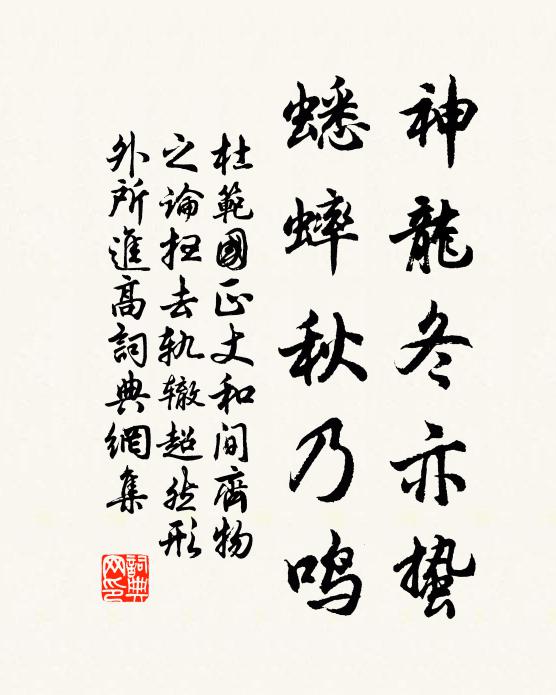 神龍冬亦蛰
蟋蟀秋乃鸣
杜範國正丈和间齊物
之論抂去轨辙超然形
外所進髙詞典網集
詞典网印